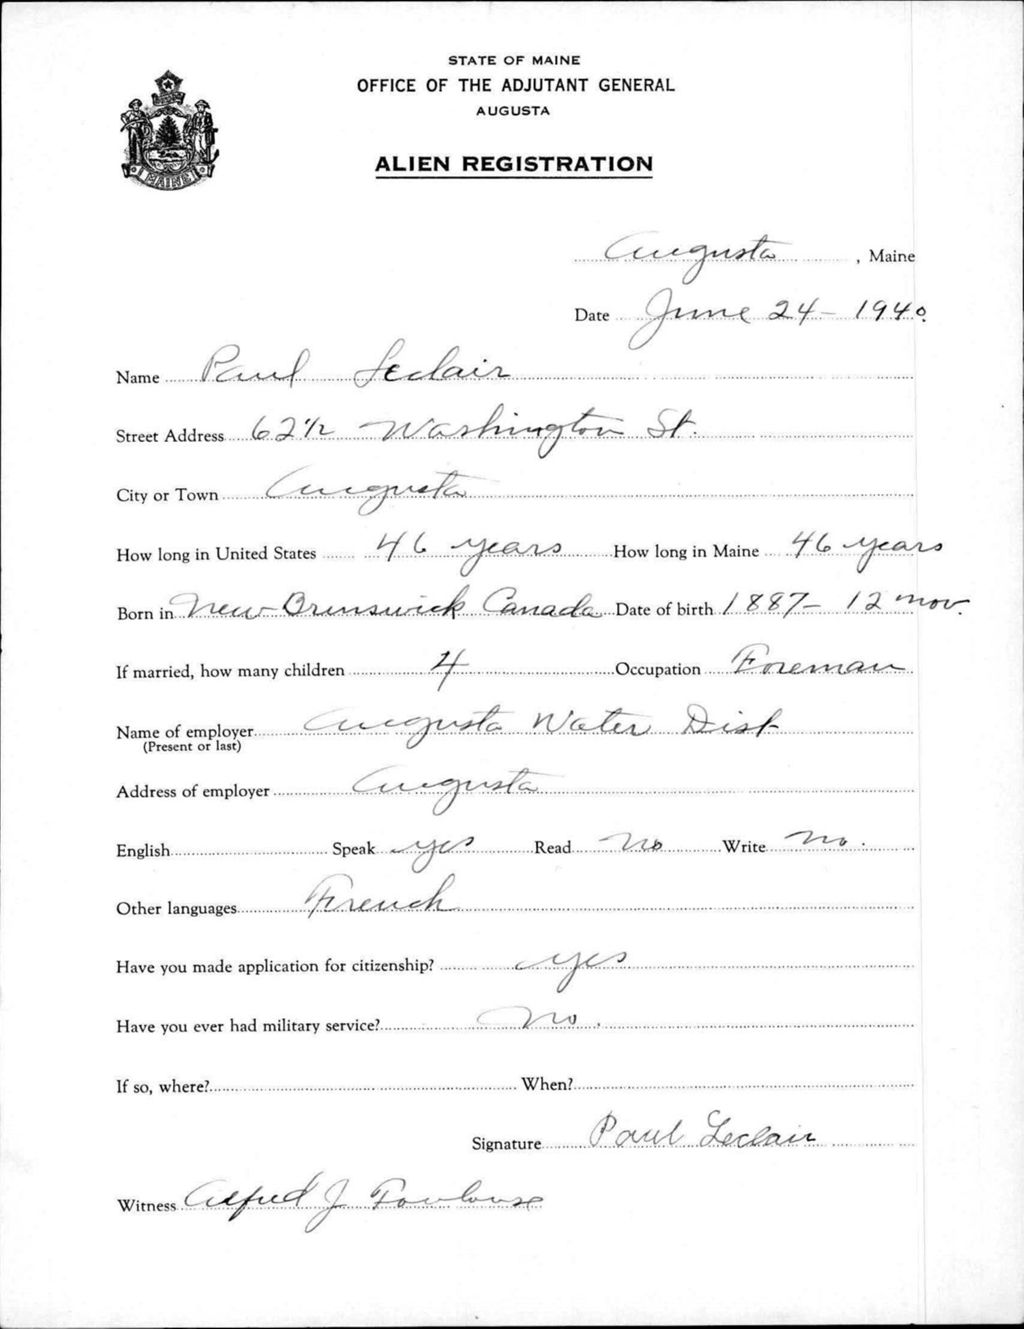 STATE OF MAINE
OFFICE OF THE ADJUTANT GENERAL
AUGUSTA
ALIEN REGISTRATION
Augusta, Maine
Date June 24 - 1940.
Name Paul Leclair
Street Address 62 1/2 Washington St.
City or Town Augusta
How long in United States 46 years How long in Maine 46 years
Born in New Brunswick Canada Date of birth 1887 - 12 Nov.
If married, how many children 4 Occupation Foreman
Name of employer Augusta Water Dist
(Present or last)
Address of employer Augusta
English Speak yes Read No Write No.
Other languages French
Have you made application for citizenship? yes
Have you ever had military service? No.
If so, where? When?
Signature Paul Leclair
Witness Alfred J Toulouse
MAINE